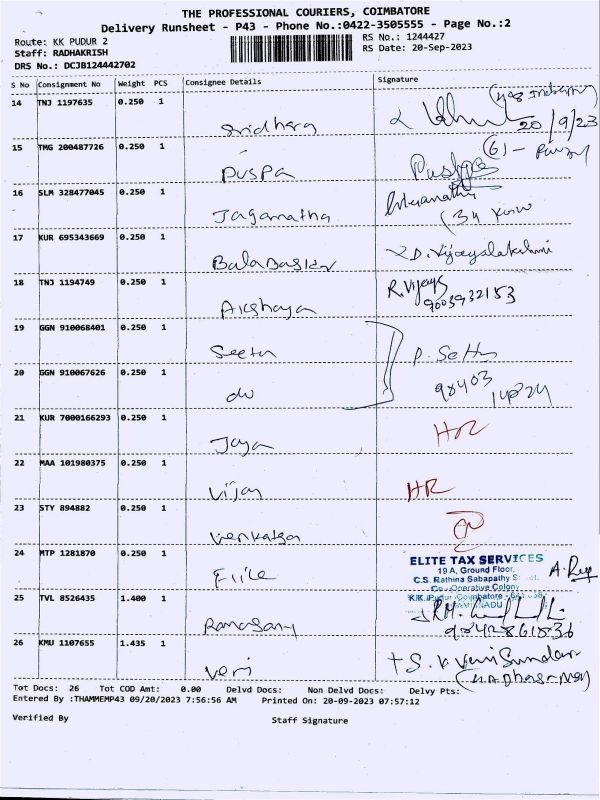 THE PROFESSIONAL COURIERS, COIMBATORE
Delivery Runsheet - P43 - Phone No.:0422-3505555 - Page No.:2
Route: KK PUDUR 2
RS No.: 1244427
Staff: RADHAKRISH
RS Date: 20-Sep-2023
DRS No.: DCJB124442702
S No Consignment No Weight PCS Consignee Details Signature
14 TNJ 1197635 0.250 1
Sridhara
20/9/23
15 TMG 200487726 0.250 1
Puspa Pushpa
16 SLM 328477045 0.250 1
Jaganatha
17 KUR 695343669 0.250 1
Balabaskar D. Vijayalakshmi
18 TNJ 1194749 0.250 1
Akshaya R. Vijaya
9003932153
19 GGN 910068401 0.250 1
Seetu P. Sethu
20 GGN 910067626 0.250 1
do 98403
21 KUR 7000166293 0.250 1
Jaya HR
22 MAA 101980375 0.250 1
Vijay HR
23 STY 894882 0.250 1
Venkatsa
24 MTP 1281870 0.250 1
Elite
ELITE TAX SERVICES
19 A, Ground Floor,
C.S. Rathina Sabapathy
Co-Operative Colony
K.K. Pudur, Coimbatore
25 TVL 8526435 1.400 1
Ramasamy
9842861836
26 KMU 1107655 1.435 1
Veri S. K. Veni Sundar
Tot Docs: 26 Tot COD Amt: 0.00 Delvd Docs: Non Delvd Docs: Delvy Pts:
Entered By :THAMMEMP43 09/20/2023 7:56:56 AM Printed On: 20-09-2023 07:57:12
Verified By Staff Signature